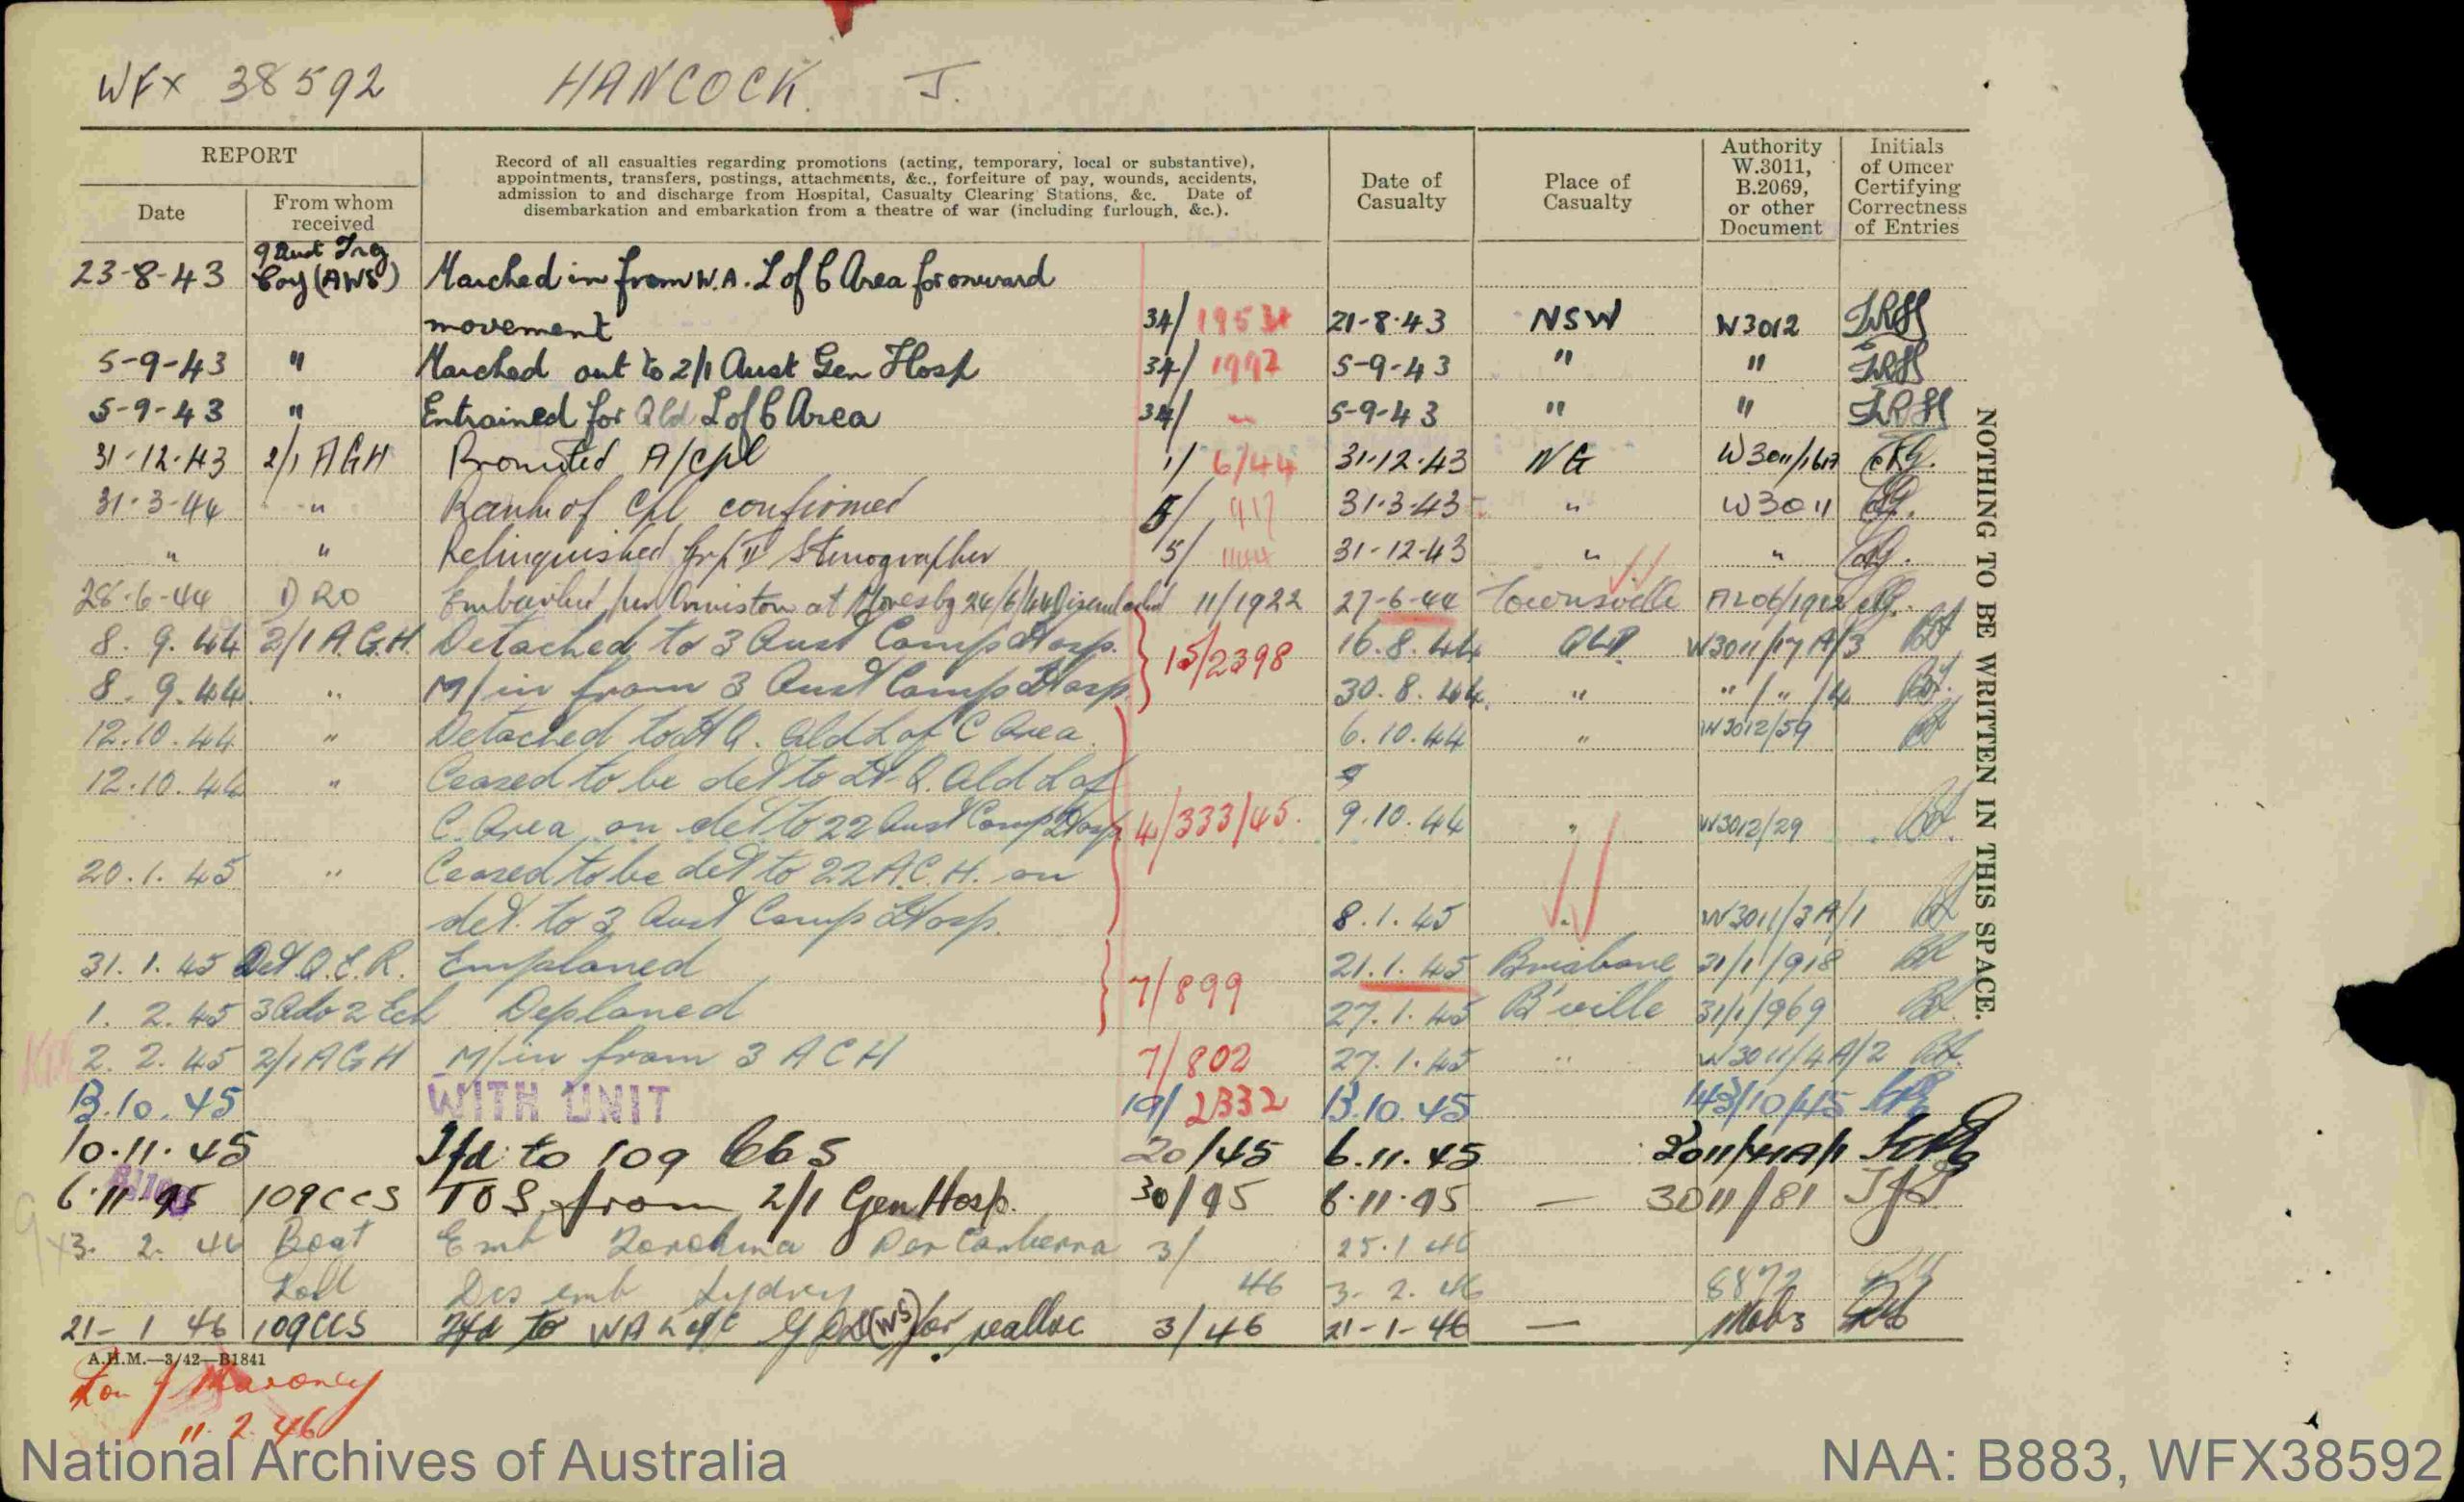 WFX 38592 HANCOCK. J.
REPORT
Date
From whom received
Record of all casualties regarding promotions (acting, temporary, local or substantive),
appointments, transfers, postings, attachments, &c., forfeiture of pay, wounds, accidents,
admission to and discharge from Hospital, Casualty Clearing Stations, &c. Date of
disembarkation and embarkation from a theatre of war (including furlough, &c.).
Date of Casualty
Place of Casualty
Authority W.3011, B.2069, or other Document
Initials of Officer Certifying Correctness of Entries
9 Aust Trg
23-8-43 Coy (AWS) Marched in from W.A. L of C Area for onward
movement 34/ 21-8-43 NSW W3012
5-9-43 " Marched out to 2/1 Aust Gen Hosp 34/ 5-9-43 " "
5-9-43 " Entrained for Qld L of C Area 34/ – 5-9-43 " "
31-12-43 2/1 AGH Promoted A/Cpl 1/ 6/44 31-12-43 NG
31-3-44 " Rank of Cpl confirmed 31-3-43 " W3011
" " Relinquished Grp II Stenographer 5/ 31-12-43 " "
28-6-44 DRO Embarked per Ormiston at Moresby 24/6/44 Disembarked 11/1922 27-6-44 Townsville
8. 9. 44 2/1 A.G.H. Detached to 3 Aust Camp Hosp. 15/2398 16.8.44 QLD W3011/17A/3
8. 9. 44 " M/in from 3 Aust Camp Hosp. 30.8.44. " " / " /4
12.10.44 " Detached to H.Q. Qld L of C Area. 6.10.44 " W3012/59
12.10.44 " Ceased to be det to H.Q. Qld L of
C. Area on det to 22 Aust Camp Hosp. 4/333/45. 9.10.44 " W3012/29
20.1.45 " Ceased to be det to 22 A.C.H. on
det. to 3 Aust Camp Hosp. 8.1.45 " W3011/3A/1
31.1.45 Det Q.E.R. Emplaned 7/899 21.1.45 Brisbane 31/1/918
1. 2. 45 2 Ech Deplaned 27.1.45 B'ville 31/1/969
2. 2. 45 2/1 AGH M/in from 3 ACH 7/802 27.1.45 " W3011/4A/2
13.10.45 WITH UNIT 19/2332 13.10.45
10.11.45 Tfd to 109 CCS 20/45 6.11.45
6.11.45 109 CCS TOS from 2/1 Gen Hosp. 30/45 6.11.45 — 3011/81
3. 2. 46 Boat Emb Torokina Per Canberra 3/ 25.1.46
Roll Dis emb Sydney 46 3. 2. 46 8872
21-1 46 109 CCS Tfd to WA L of C GDD (WS) for realloc 3/46 21-1-46 —
NOTHING TO BE WRITTEN IN THIS SPACE.
A.H.M.—3/42—B1841
11. 2. 46
National Archives of Australia
NAA: B883, WFX38592